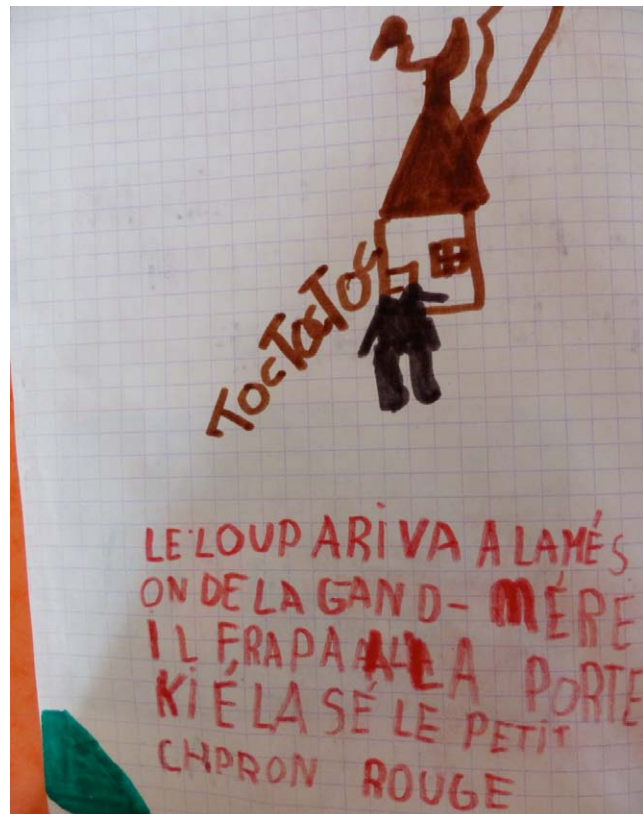 TOC TOC TOC
LE LOUP ARIVA A LAMÉS
ON DE LA GAND-MÉRE
IL FRAPA A LA PORTE
KI É LA SÉ LE PETIT
CHPRON ROUGE